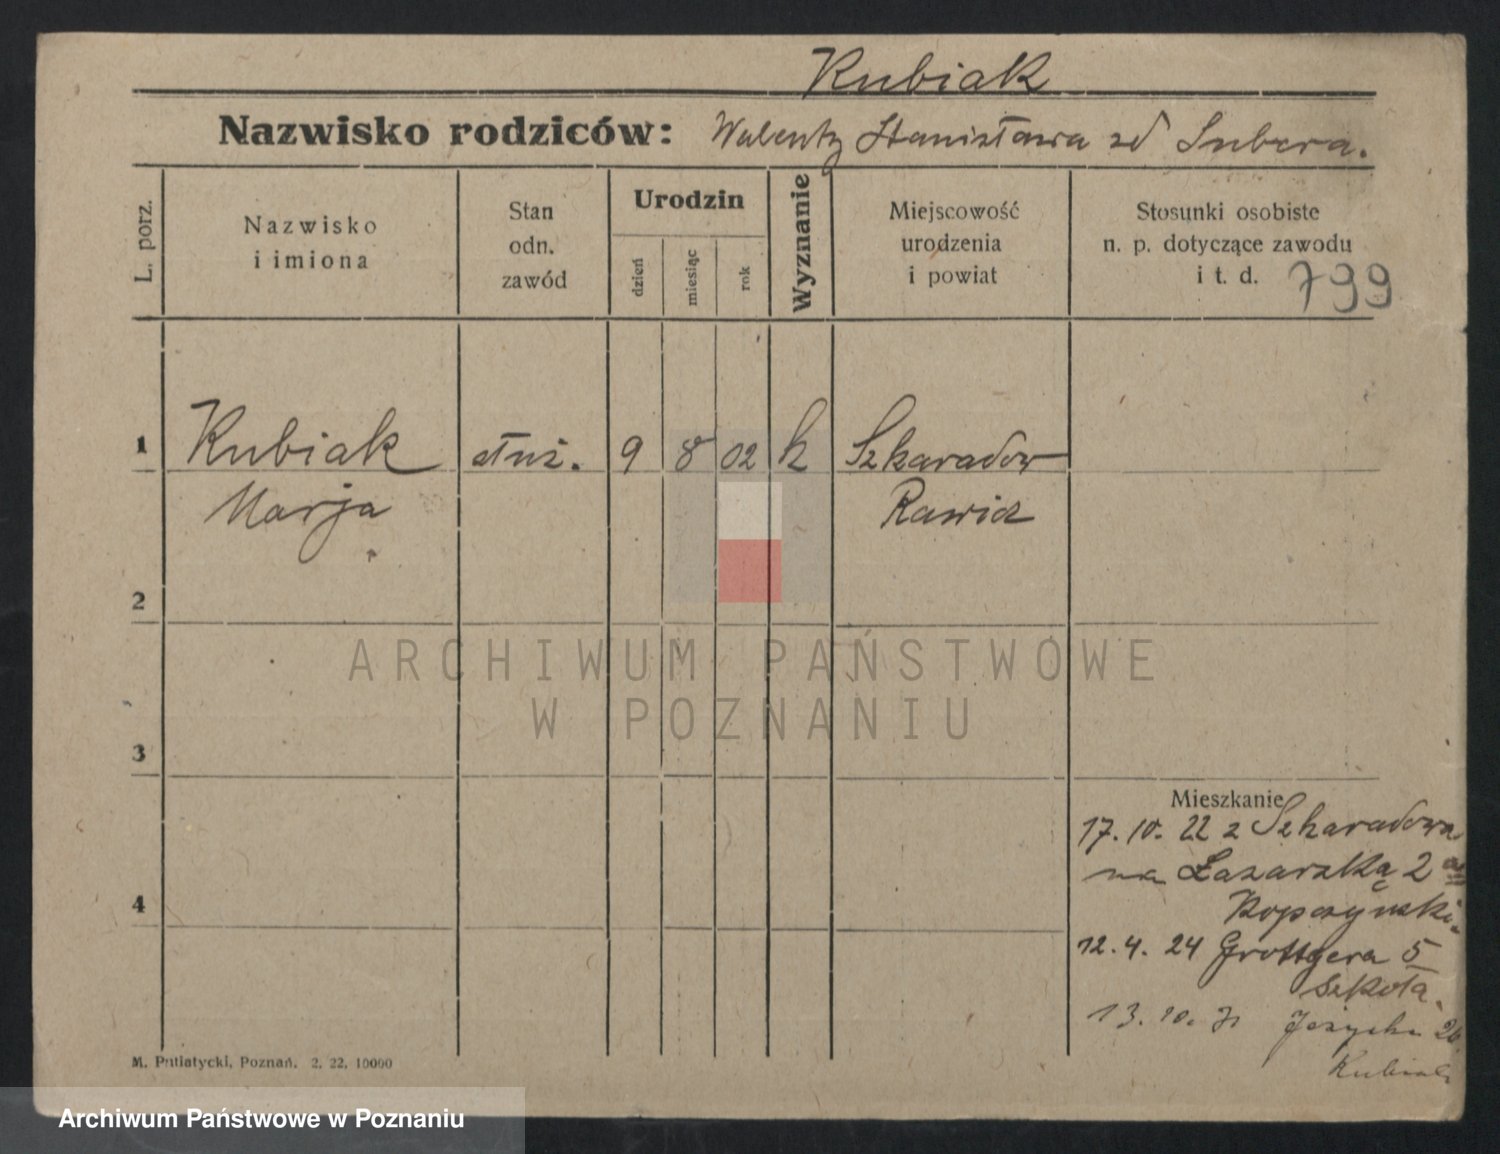 Kubiak
Nazwisko rodziców: Walenty Stanisława zd Subera.
L. porz.
Nazwisko
i imiona
Stan
odn.
zawód
Urodzin
dzień
miesiąc
rok
Wyznanie
Miejscowość
urodzenia
i powiat
Stosunki osobiste
n. p. dotyczące zawodu
i t. d. 799
1 Kubiak służ. 9 8 02 k Szkaradow
Marja Rawicz
2
ARCHIWUM PAŃSTWOWE
W POZNANIU
3
Mieszkanie
17. 10. 22 z Szkaradowa
na Łazarską 2
Kopczyński.
4
12. 4. 24 Grottgera 5
Szkoła.
13. 10. 31 Jeżycka 26
Kubiak
M. Putiatycki, Poznań. 2. 22. 10000
Archiwum Państwowe w Poznaniu